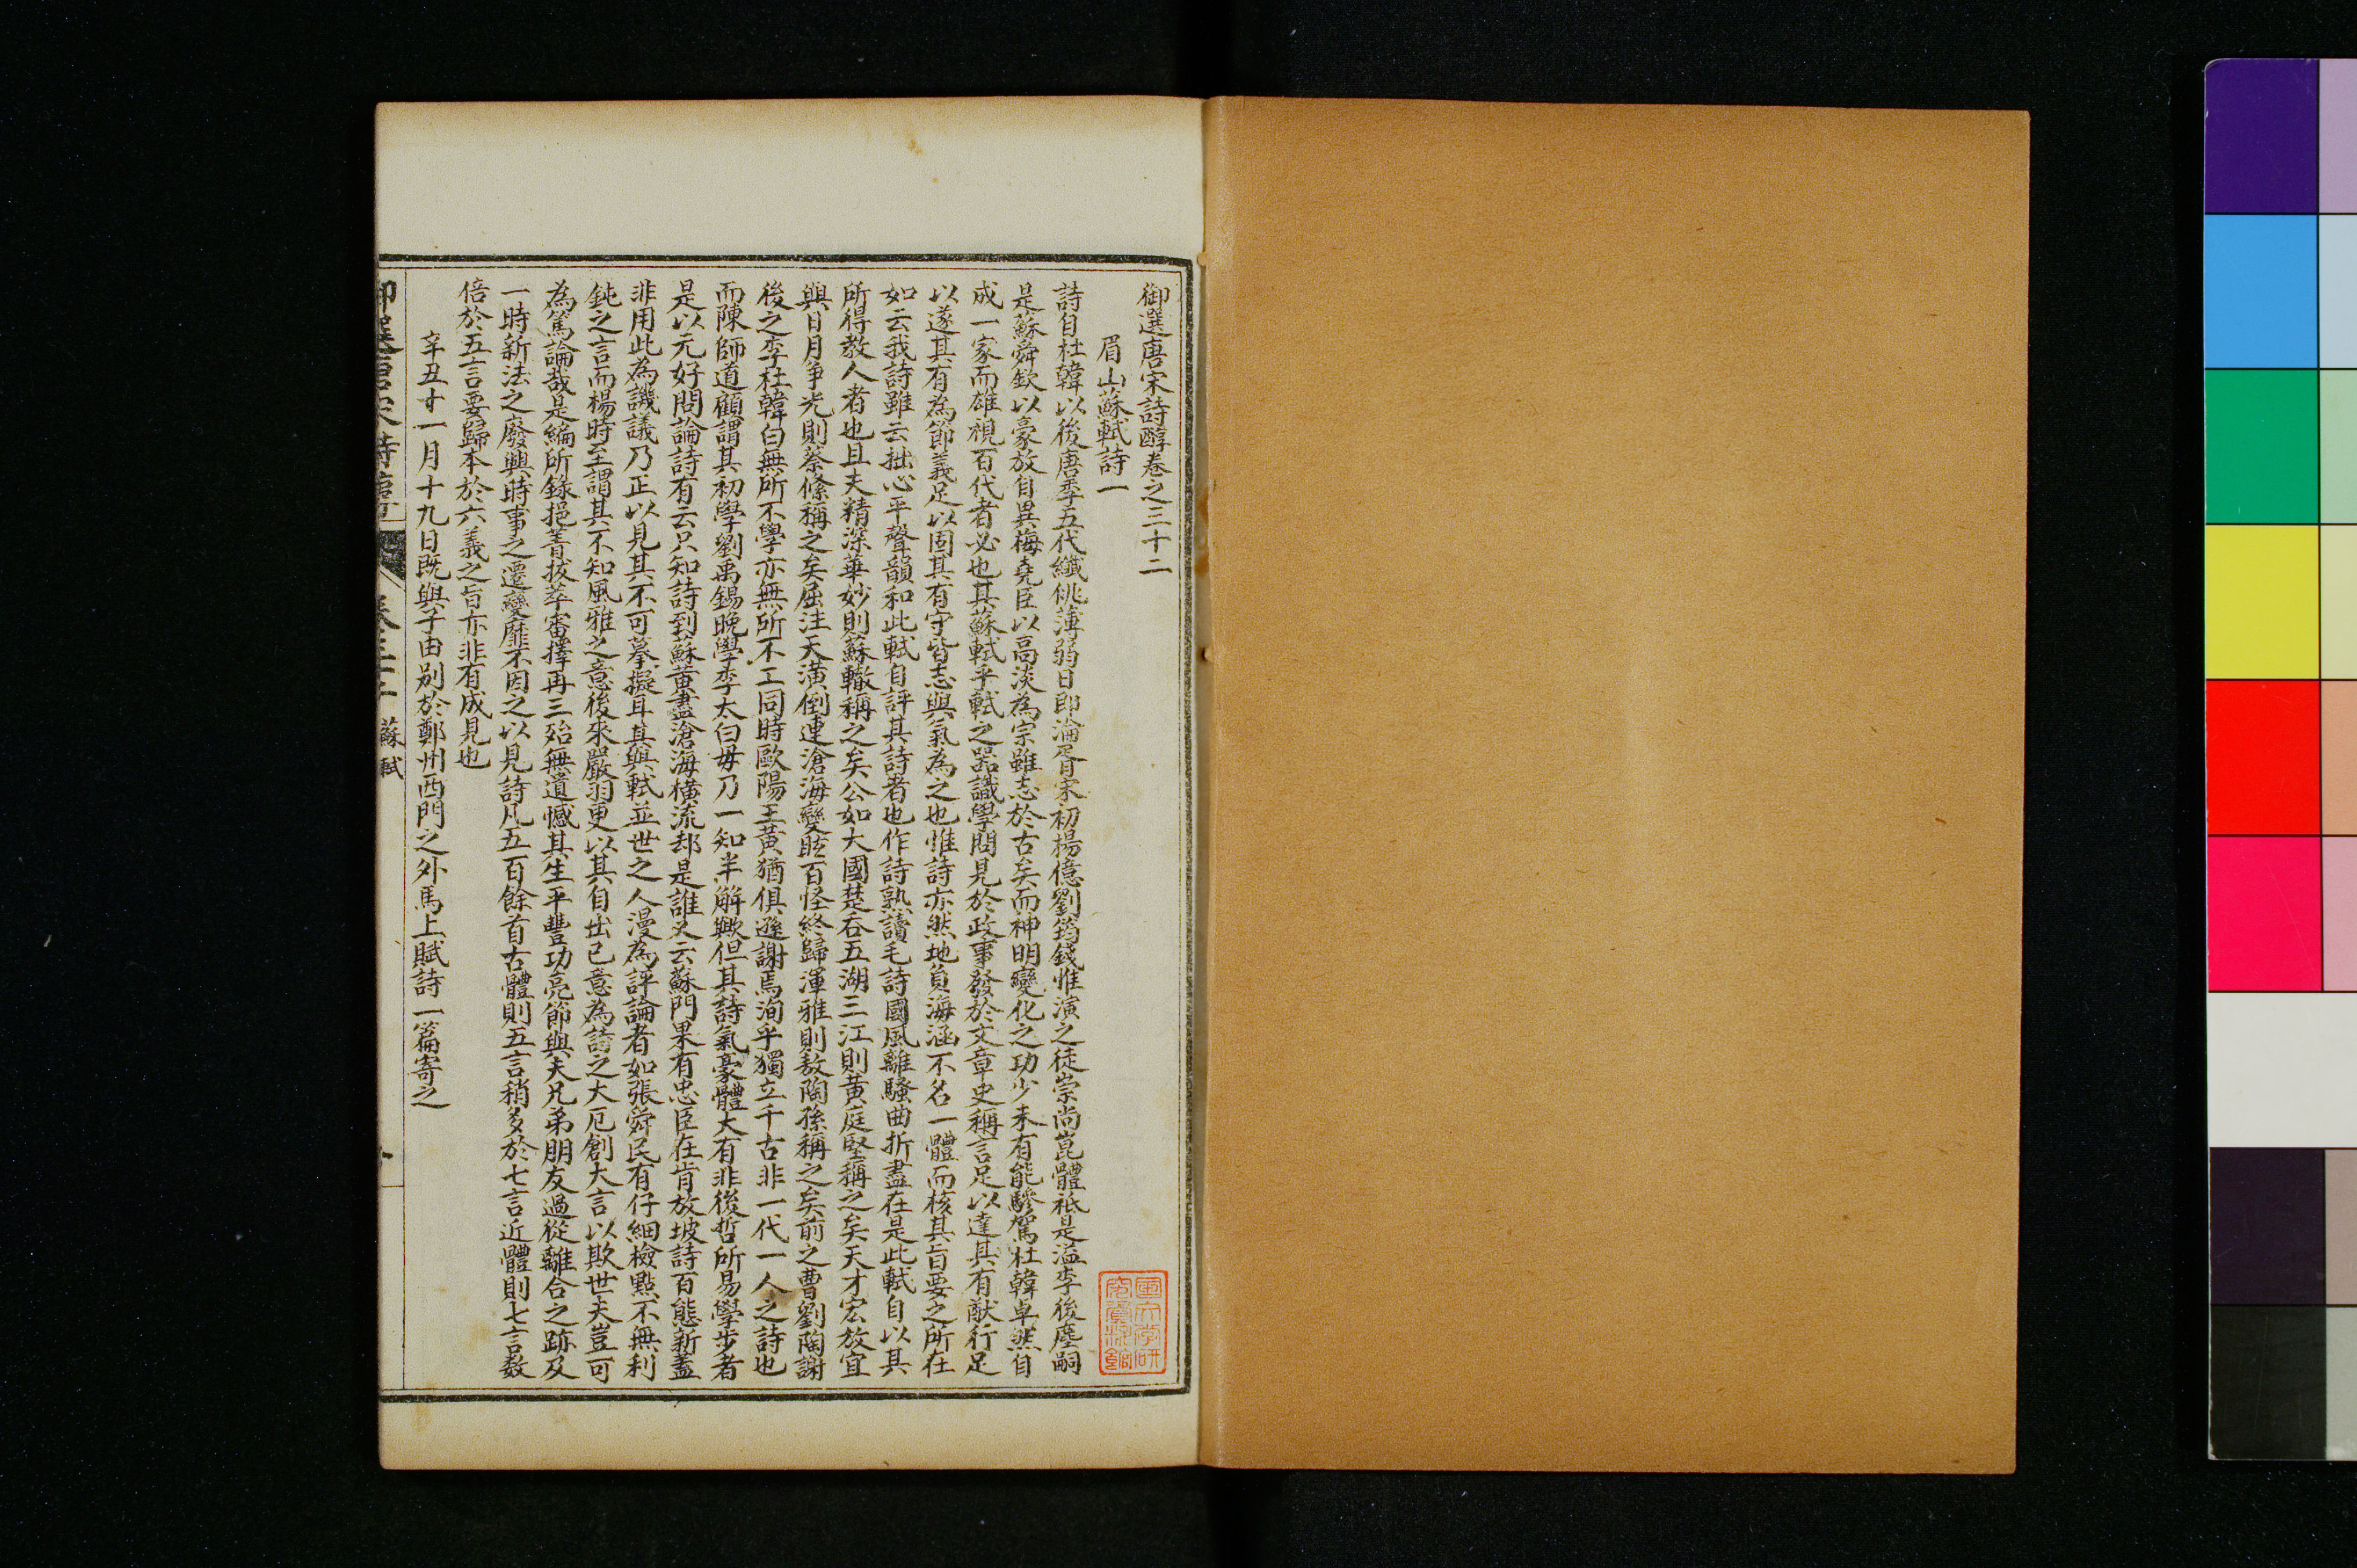 御選唐宋詩醇卷之三十二
眉山蘇軾詩一
詩自杜韓以後唐季五代纖佻薄弱日即淪胥宋初楊億劉筠錢惟演之徒崇尚崑體祇是溢李後塵嗣
是蘇舜欽以豪放自異梅堯臣以高淡為宗雖志於古矣而神明變化之功少未有能驂駕杜韓卓然自
成一家而雄視百代者必也其蘇軾乎軾之器識學問見於政事發於文章史稱言足以達其有猷行足
以遂其有為節義足以固其有守皆志與氣為之也惟詩亦然地負海涵不名一體而核其旨要之所在
如云我詩雖云拙心平聲韻和此軾自評其詩者也作詩熟讀毛詩國風離騷曲折盡在是此軾自以其
所得教人者也且夫精深華妙則蘇轍稱之矣公如大國楚吞五湖三江則黃庭堅稱之矣天才宏放宜
與日月爭光則蔡絛稱之矣屈注天潢倒連滄海變眩百怪終歸渾雅則敖陶孫稱之矣前之曹劉陶謝
後之李杜韓白無所不學亦無所不工同時歐陽王黃猶俱遜謝焉洵乎獨立千古非一代一人之詩也
而陳師道顧謂其初學劉禹錫晚學李太白毋乃一知半解歟但其詩氣豪體大有非後哲所易學步者
是以元好問論詩有云只知詩到蘇黃盡滄海橫流却是誰又云蘇門果有忠臣在肯放坡詩百態新蓋
非用此為譏議乃正以見其不可摹擬耳其與軾並世之人漫為評論者如張舜民有仔細檢點不無利
鈍之言而楊時至謂其不知風雅之意後來嚴羽更以其自出己意為詩之大厄創大言以欺世夫豈可
為篤論哉是編所錄挹菁拔萃審擇再三殆無遺憾其生平豐功亮節與夫兄弟朋友過從離合之跡及
一時新法之廢興時事之遷變靡不因之以見詩凡五百餘首古體則五言稍多於七言近體則七言数
倍於五言要歸本於六義之旨亦非有成見也
辛丑十一月十九日既與子由別於鄭州西門之外馬上賦詩一篇寄之
御選唐宋詩醇 卷三十二 蘇軾
国文学研
究資料館